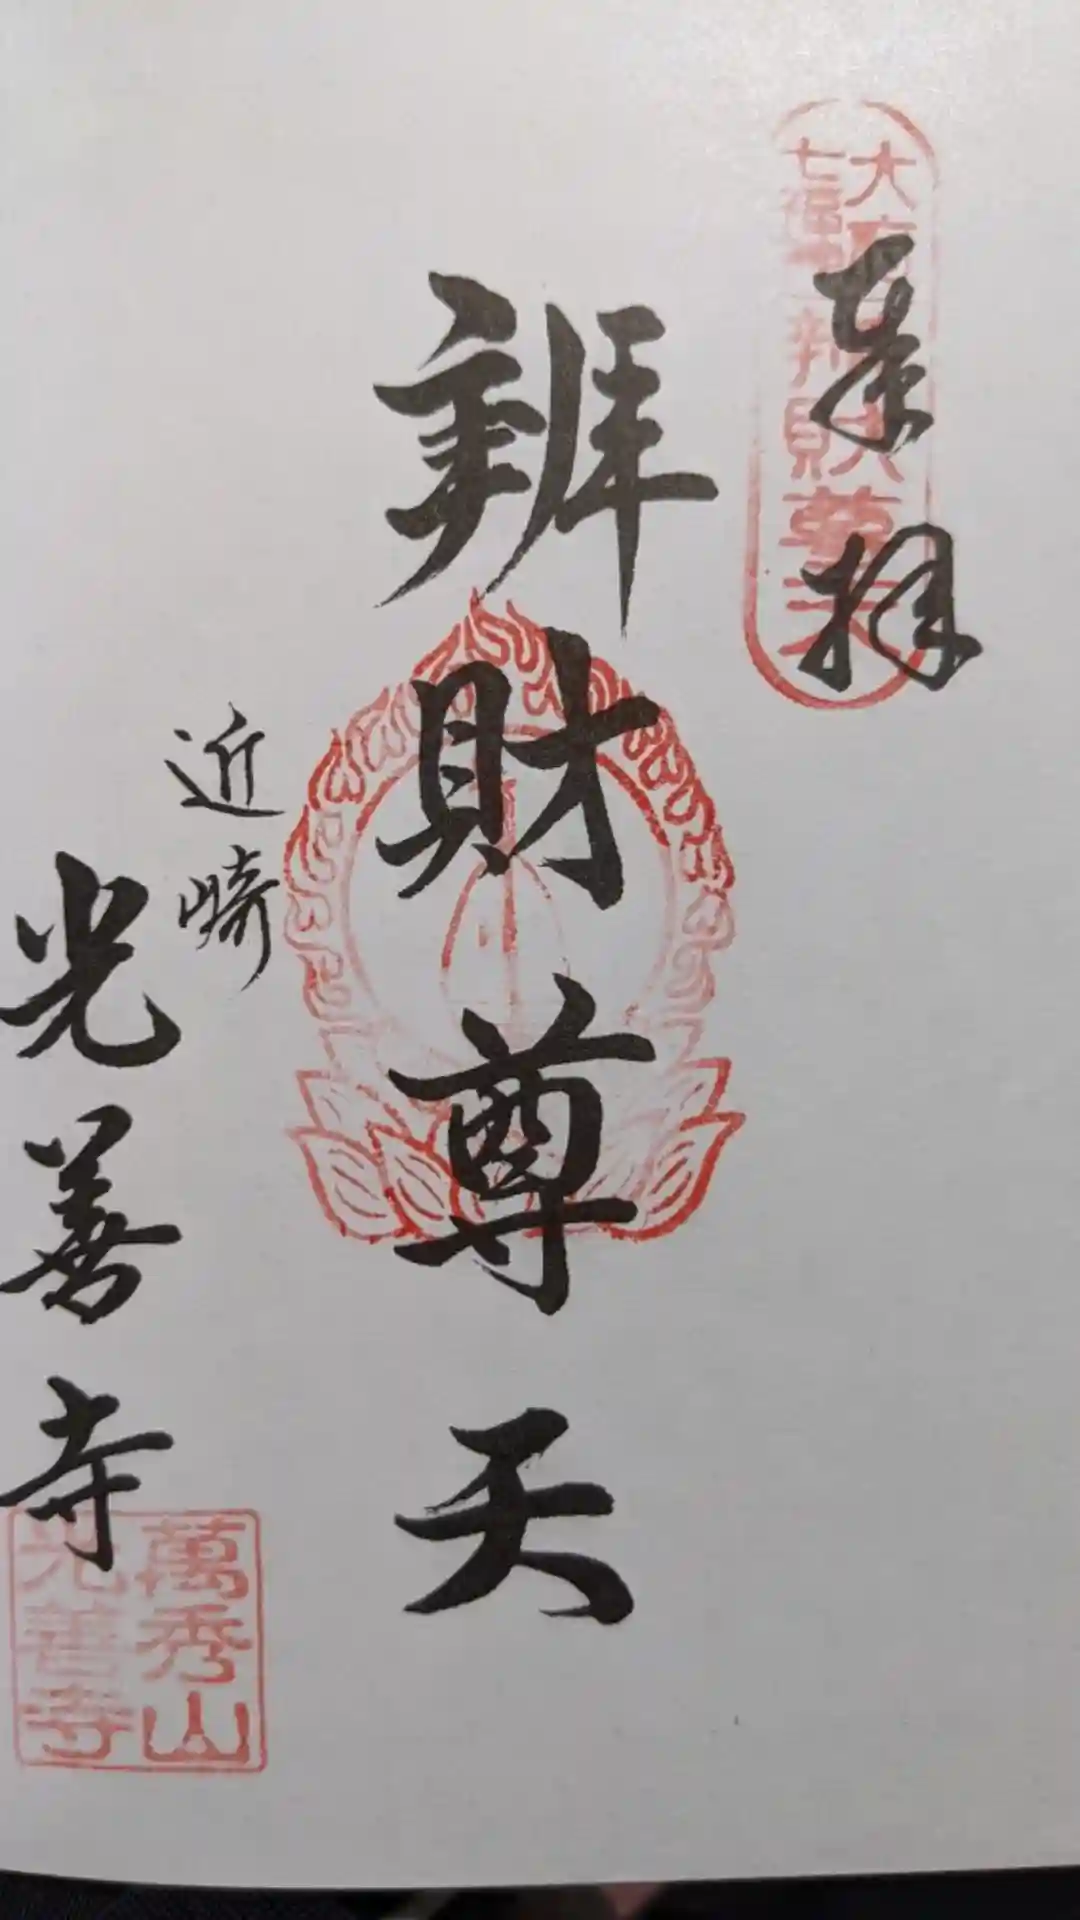 奉拝
大府
七福神
辨財尊天
辨財尊天
近崎
光善寺
萬秀山
光善寺